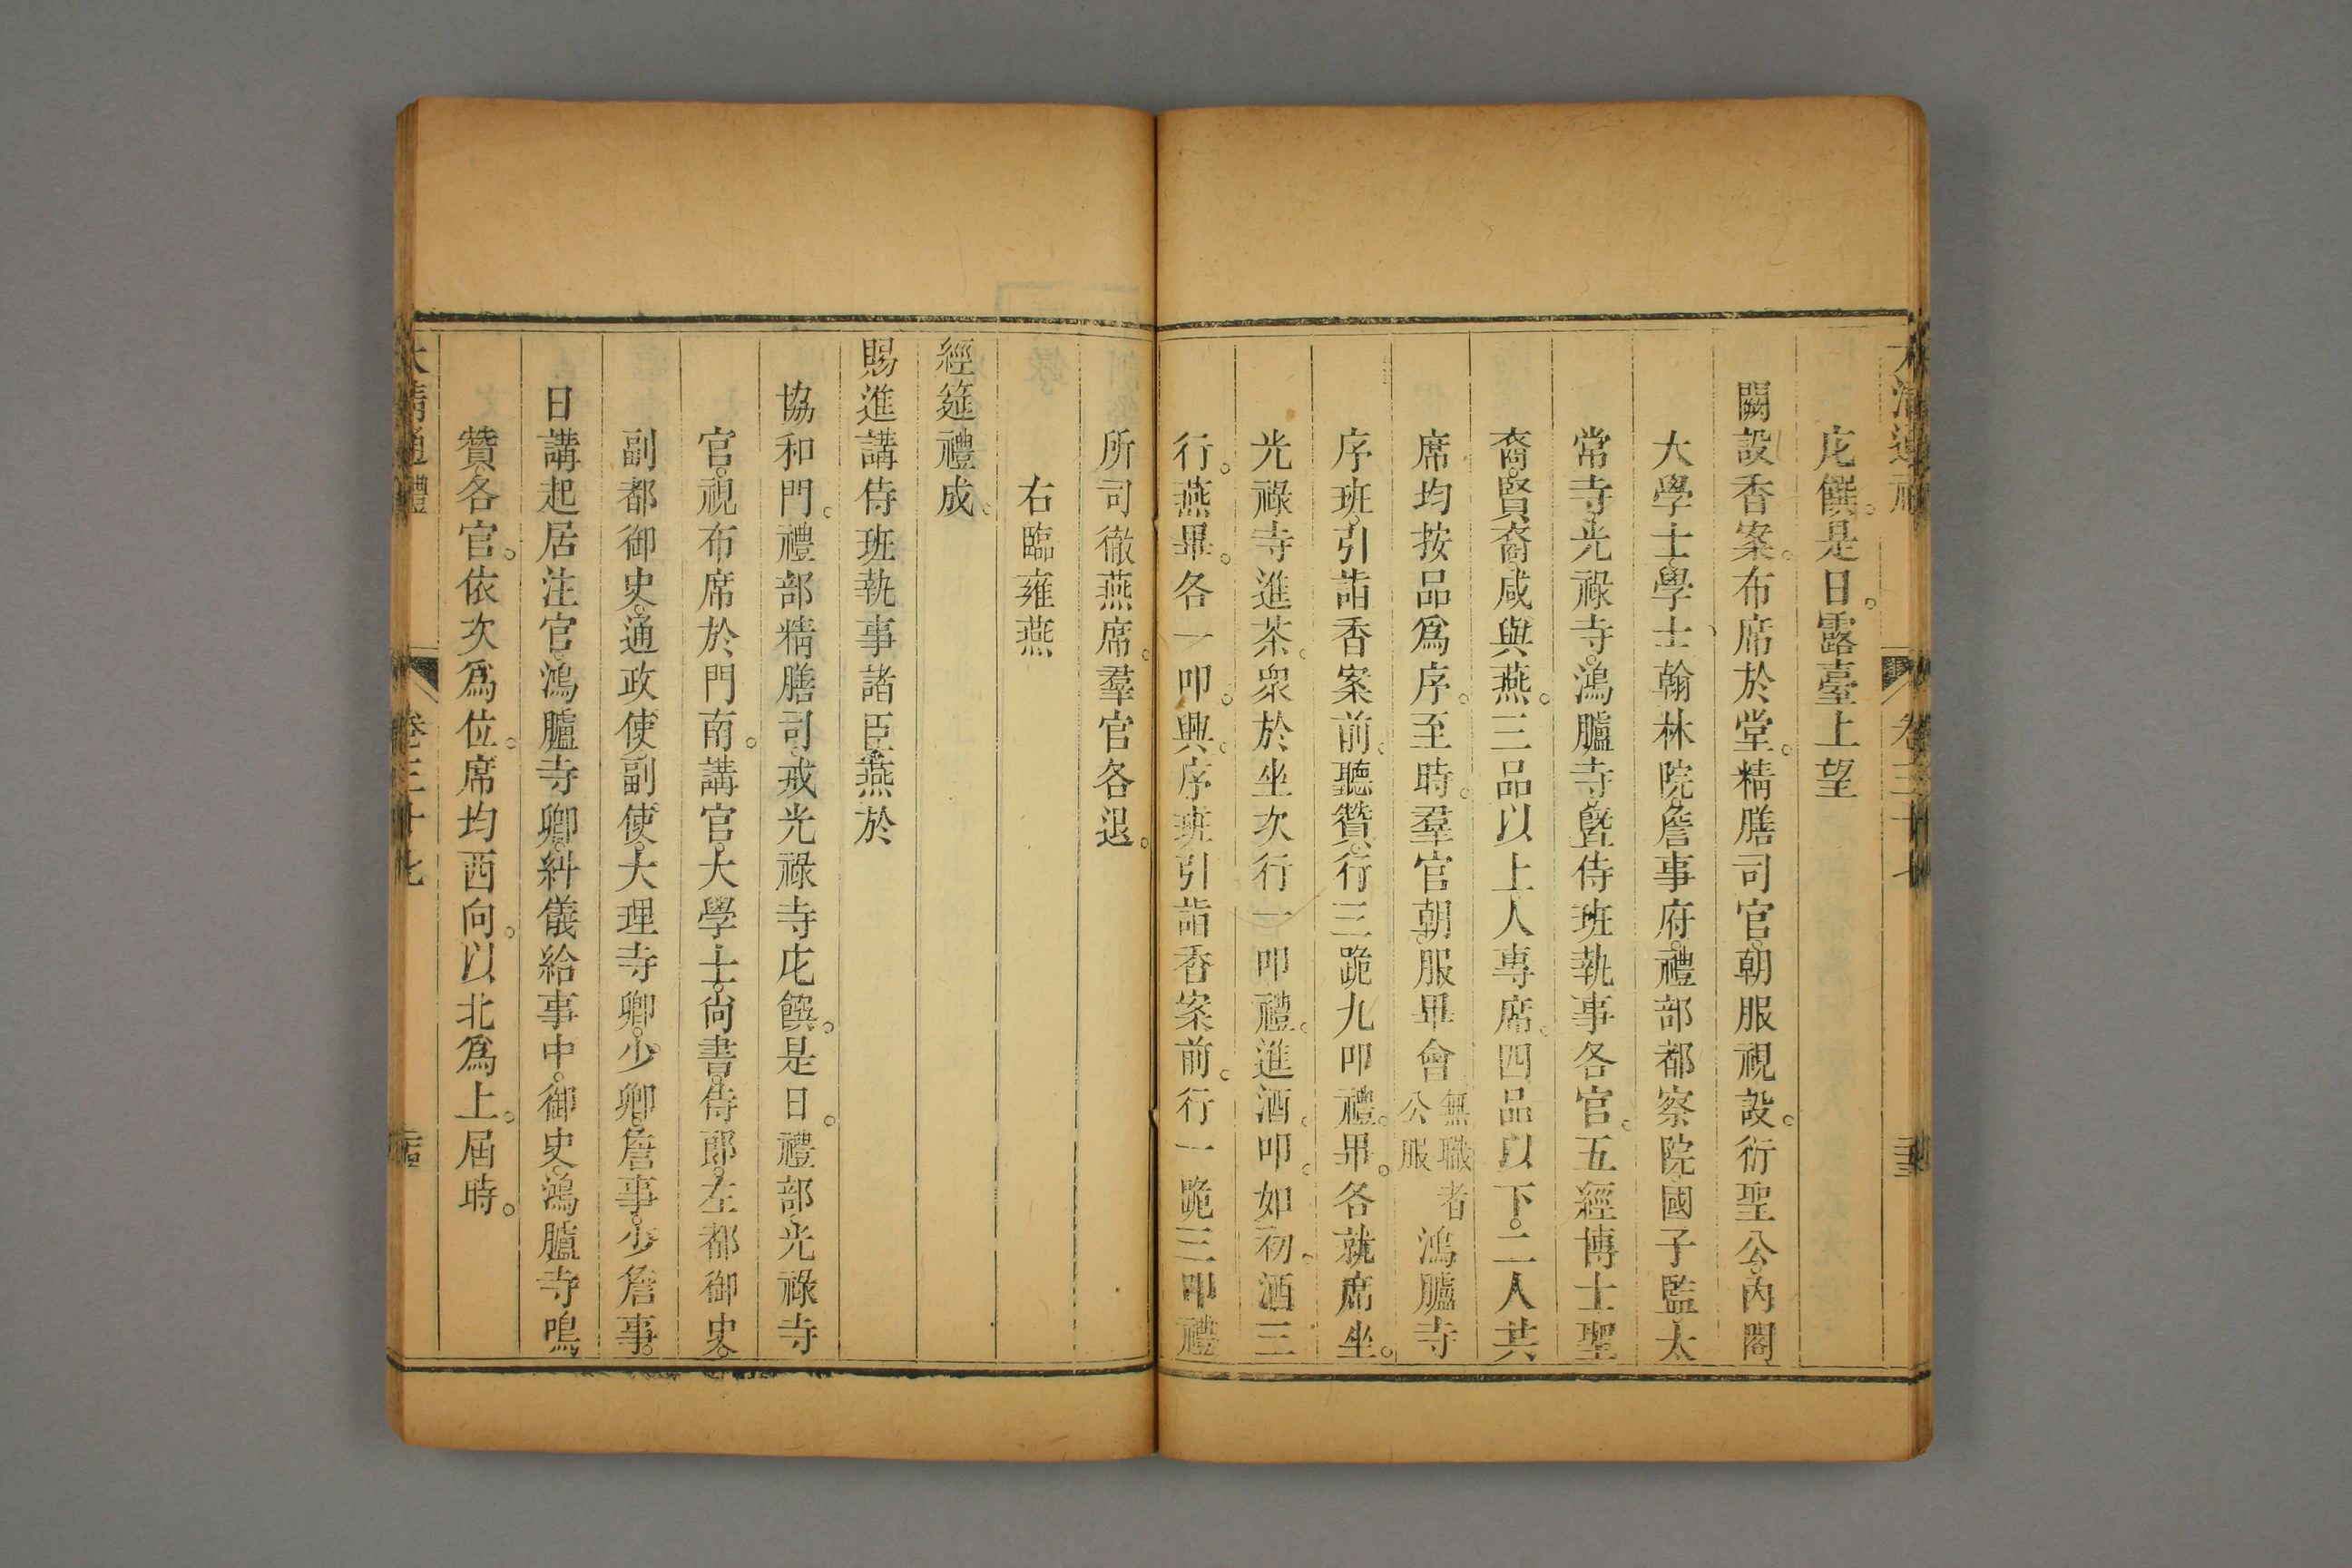 大清通禮 卷三十七
庀饌。是日。露臺上望
闕設香案。布席於堂。精膳司官。朝服視設。衍聖公。內閣
大學士。學士。翰林院。詹事府。禮部都察院。國子監。太
常寺。光祿寺。鴻臚寺。曁侍班執事各官。五經博士聖
裔。賢裔。咸與燕。三品以上人專席。四品以下。二人共
席均按品爲序。至時。羣官朝服畢會無職者公服鴻臚寺
序班。引詣香案前。聽贊。行三跪九叩禮。畢。各就席坐。
光祿寺進茶。眾於坐次行一叩禮。進酒。叩。如初。酒三
行。燕畢。各一叩。興。序班引詣香案前。行一跪三叩禮
所司徹燕席。羣官各退。
右臨雍燕
經筵禮成。
賜進講侍班執事諸臣燕於
協和門。禮部精膳司。戒光祿寺庀饌。是日。禮部。光祿寺
官。視布席於門南。講官。大學士。尚書。侍郎。左都御史。
副都御史。通政使副使。大理寺卿。少卿。詹事。少詹事。
日講起居注官。鴻臚寺卿。糾儀給事中。御史。鴻臚寺鳴
贊。各官。依次爲位。席均西向。以北爲上。屆時。
大清通禮 卷三十七